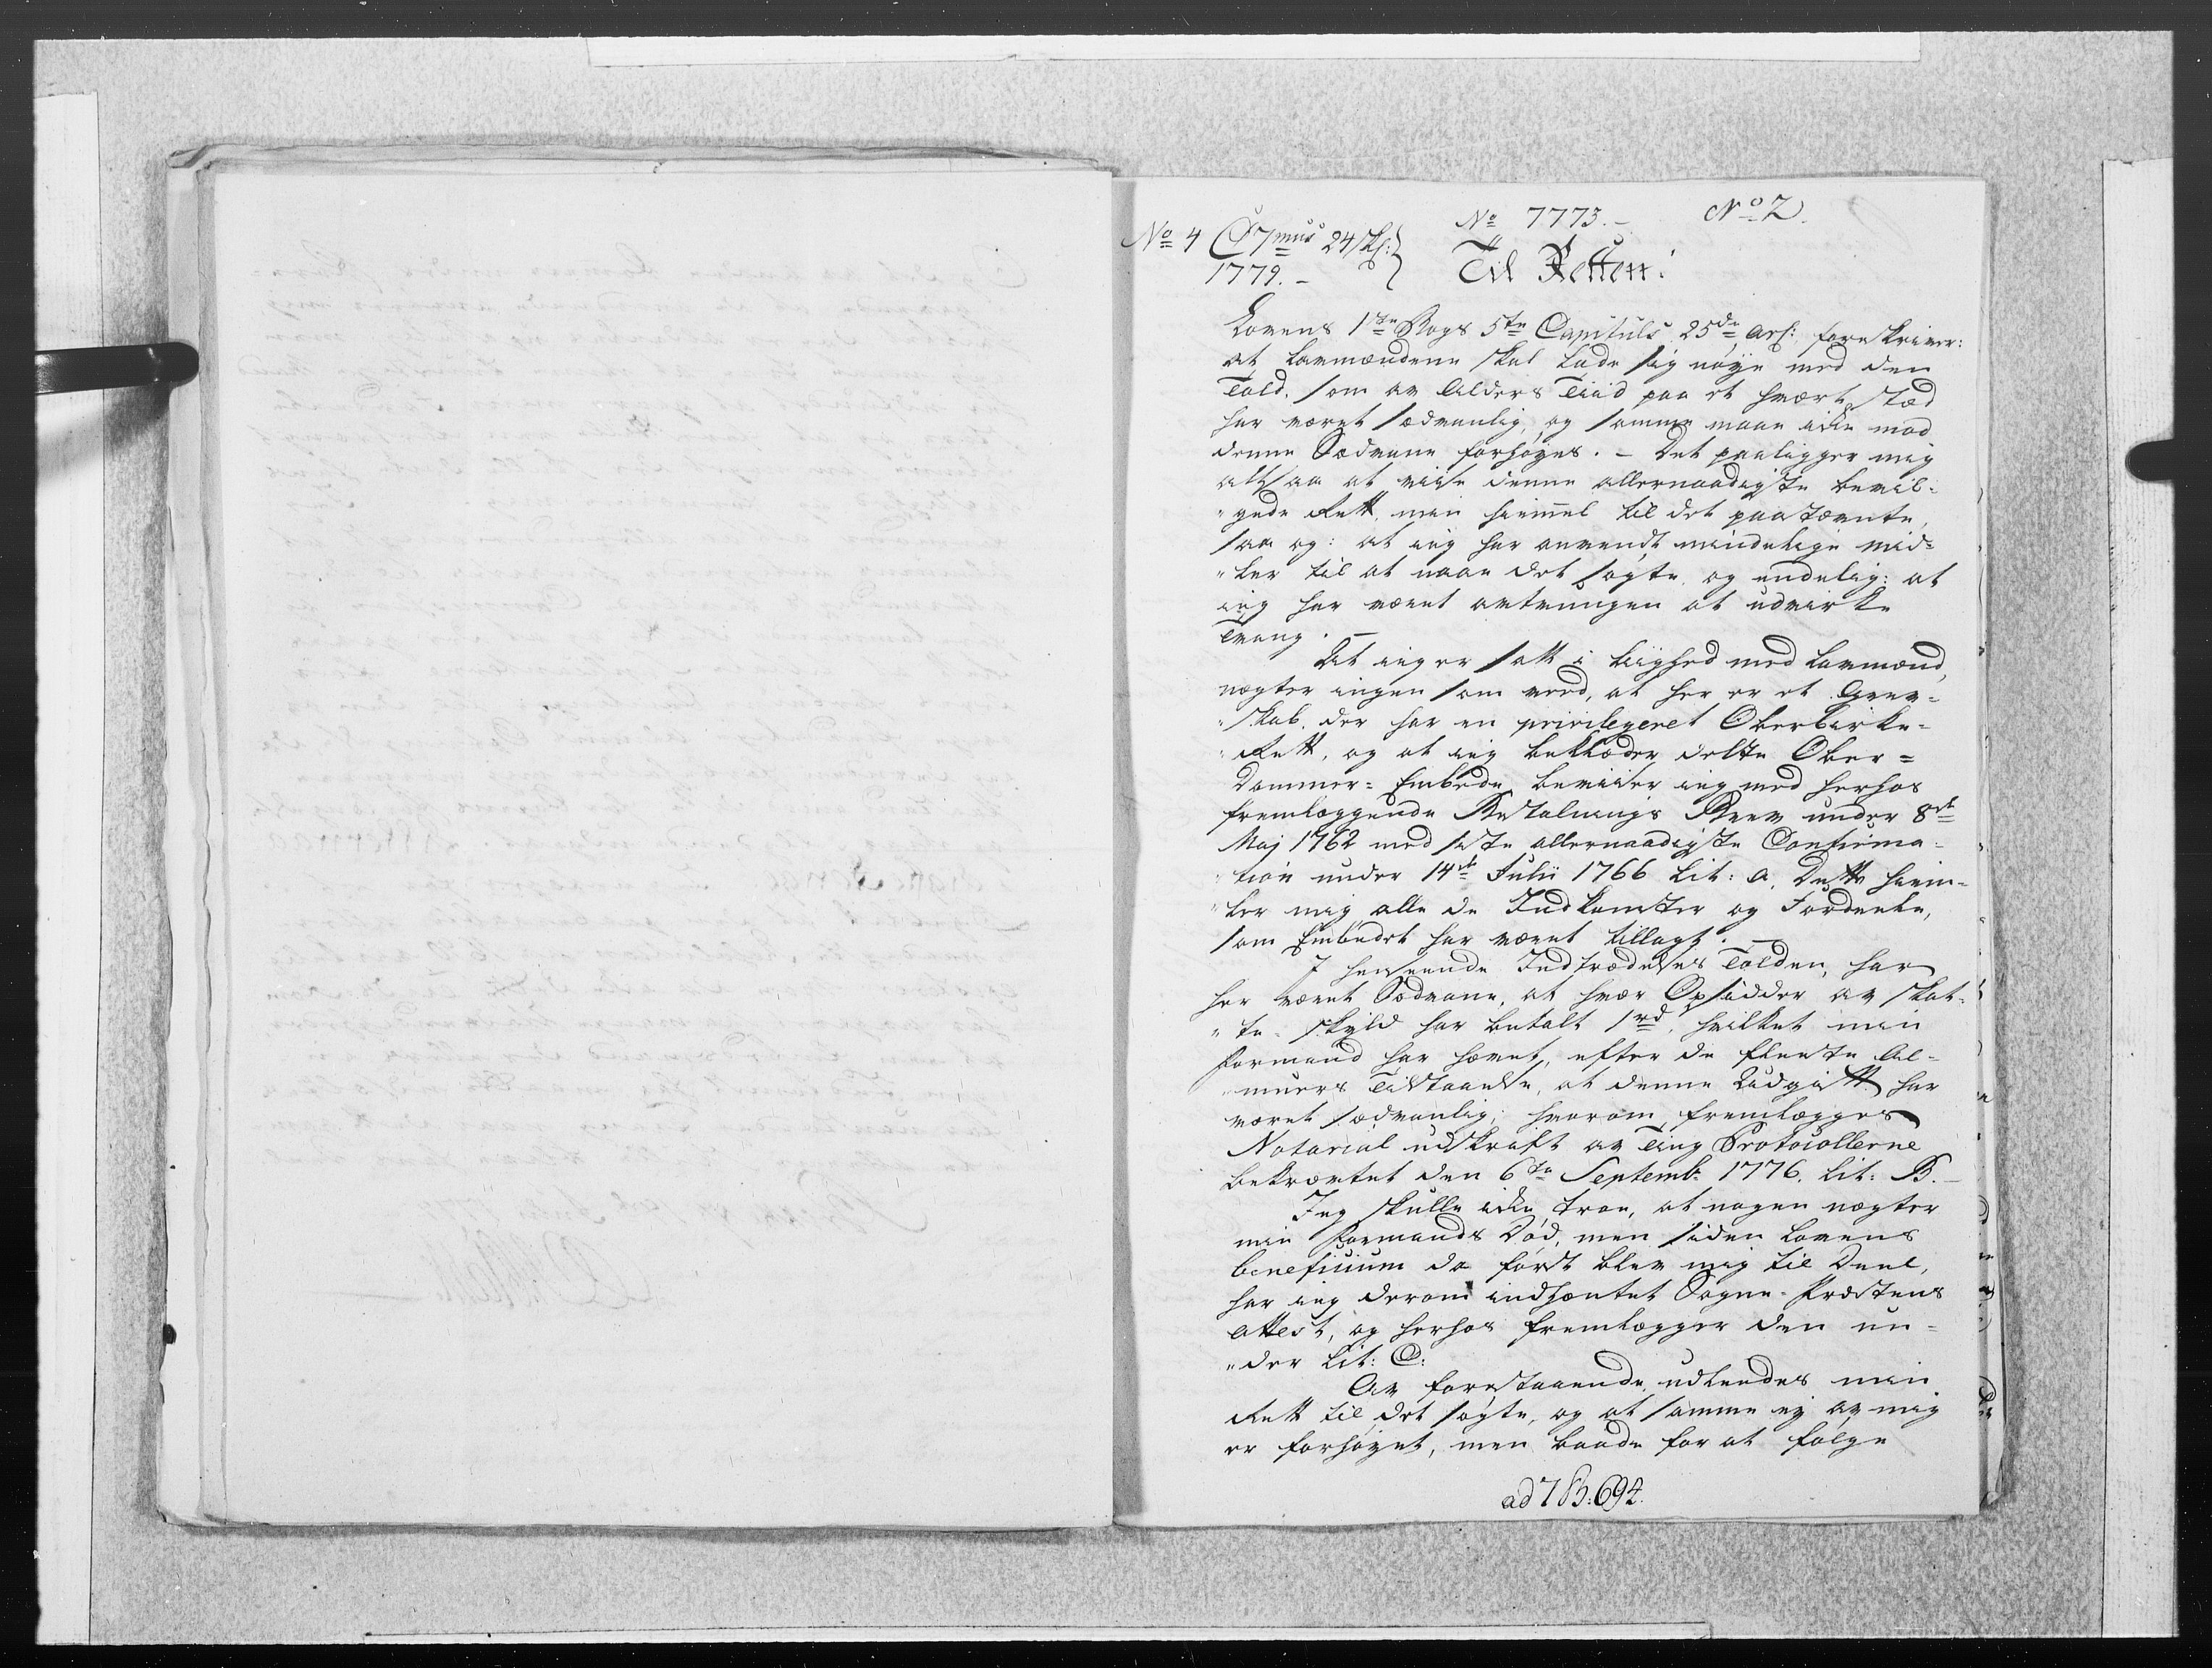 No 7773.- No 2.
No 4 C 7mus 24 sk:
1779.-
Til Retten!
Lovens 1ste Bogs 5te Capituls 25de Art: foreskriver:
at Lavmændene skal lade sig nøye med den
Told, som av Alders Tiid paa et hvært Stæd
har været sædvanlig, og samme maae ikke mod
denne Sædvane forhøyes. - Det paaligger mig
altsaa at viise denne allernaadigste bevil-
"gede Rett, min Hiemmel til det paastævnte,
saa og: at ieg har anvendt mindelige mid-
"ler til at naae det søgte, og endelig: at
ieg har været avtvungen at udvirke
Tvang. -
At ieg er satt i Liighed med Lavmænd,
nægter ingen som veed, at her er et Grev-
"skab, der har en privilegeret Oberbirke-
"Rett, og at ieg beklæder dette Ober-
Dommer-Embede, beviiser ieg med herhos
fremlæggende Bestalnings Brev under 8de
Maj 1762 med sidste allernaadigste Confirma-
"tion under 14de Julii 1766 Lit: A. Dette hiem-
"ler mig alle de Indkomster og Fordeele,
som Embedet har været tillagt. -
I henseende Indtrædelses Tolden, har
her været Sædvane, at hvær Opsidder av skat-
"te-skyld har betalt 1 rd, hvilket min
Formand har hævet, efter de fleeste Al-
"muers Tilstaaelse, at denne Udgift har
været sædvanlig; hvorom fremlægges
Notarial udskrift av Ting Protocollerne
bekræftet den 6te Septembr 1776. Lit: B. -
Jeg skulle ikke troe, at nogen nægter
min Formands Død, men siden Lovens
beneficium da først blev mig til Deel,
har ieg derom indhæntet Sogne-Præstens
Attest, og herhos fremlægger den un-
"der Lit: C:
Av forestaaende udleedes min
Rett til det søgte, og at samme ey av mig
er forhøyet, men baade for at følge
ad 7 B: 694.